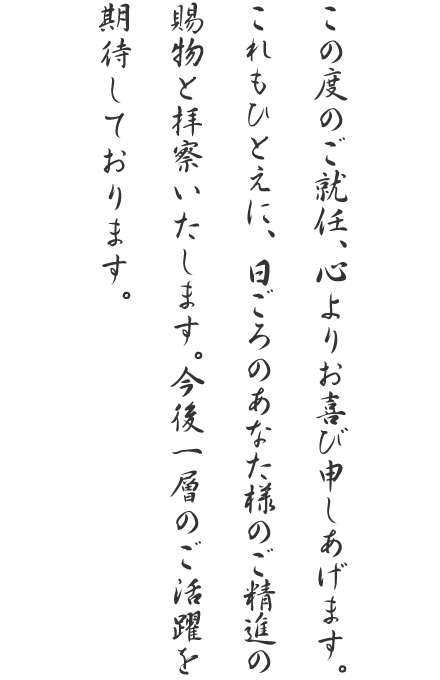 この度のご就任、心よりお喜び申しあげます。
これもひとえに、日ごろのあなた様のご精進の
賜物と拝察いたします。今後一層のご活躍を
期待しております。